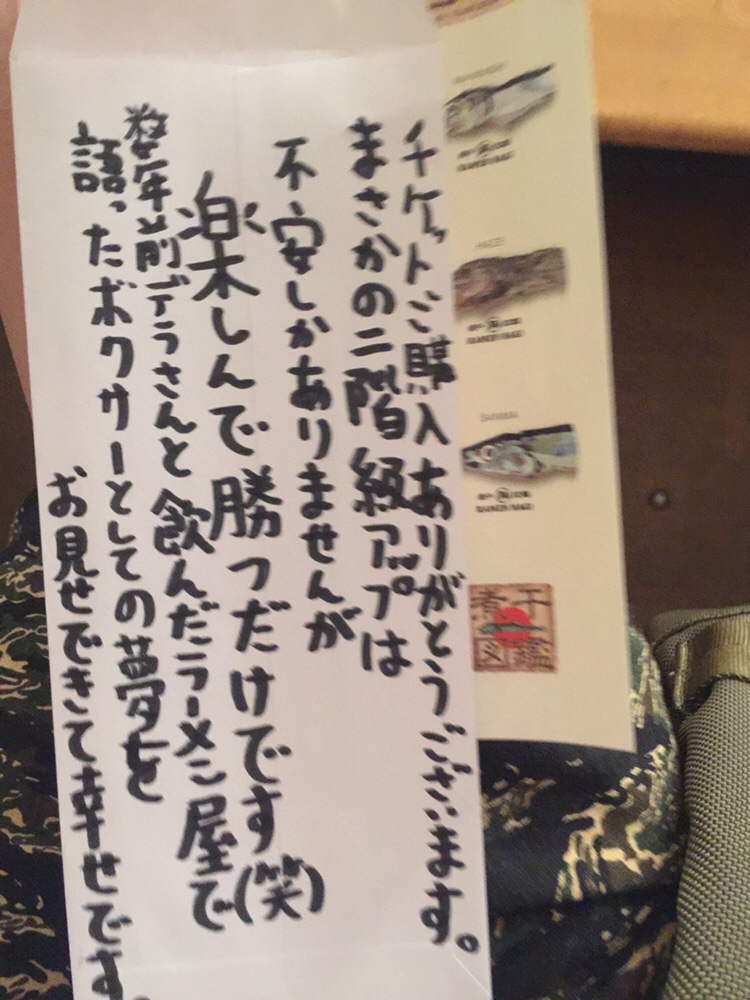 チケットご購入ありがとうございます。
まさかの二階級アップは
不安しかありませんが
楽しんで勝つだけです(笑)
数年前デラさんと飲んだラーメン屋で
語ったボクサーとしての夢を
お見せできて幸せです。
SANMA
煮干
図鑑